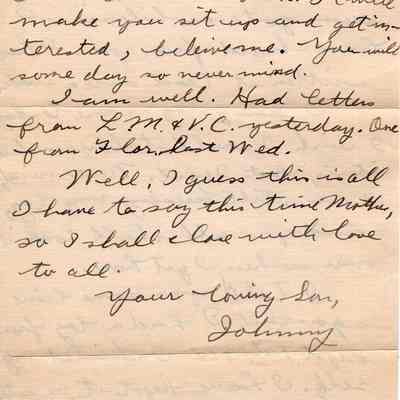 make you set up and get in-
terested, beleive me. You will
some day so never mind.
I am well. Had letters
from L.M. & V.C. yesterday. One
from Flor. last Wed.
Well, I guess this is all
I have to say this time Mother,
so I shall close with love
to all.
Your loving Son,
Johnny